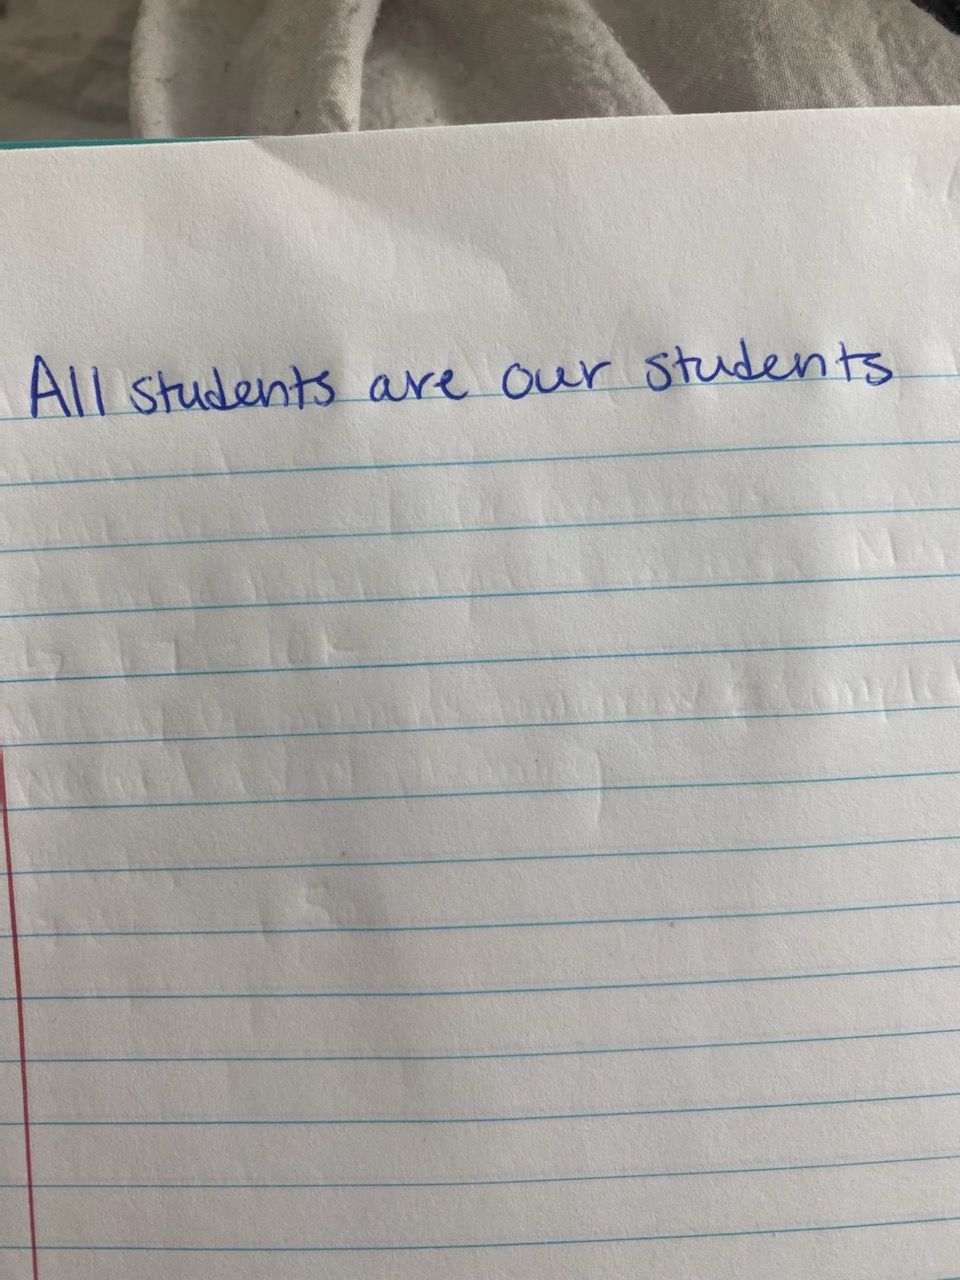 All students are our students